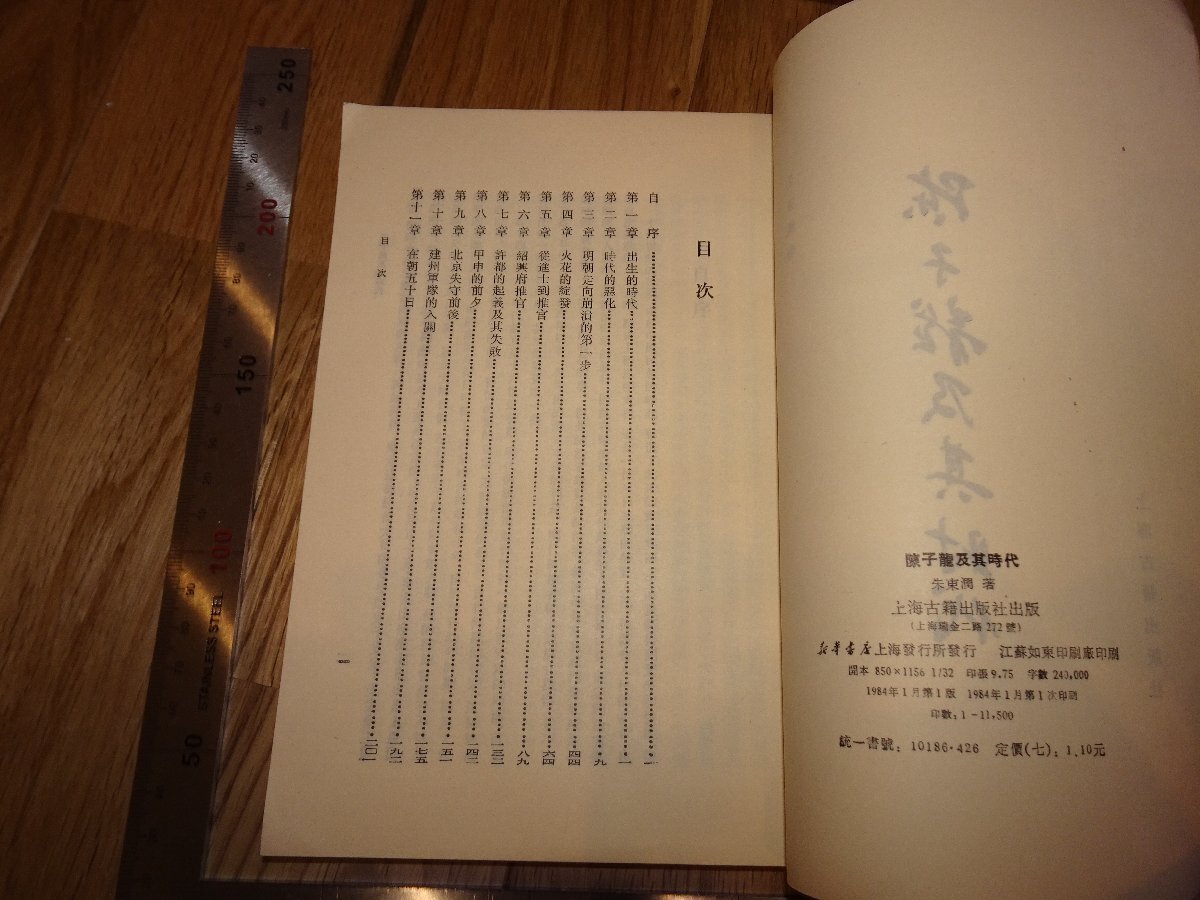 陳子龍及其時代
朱東潤 著
上海古籍出版社出版
(上海瑞金二路272號)
新華書店上海發行所發行 江蘇如東印刷廠印刷
開本 850×1156 1/32 印張 9.75 字數 240,000
1984年1月第1版 1984年1月第1次印刷
印數:1-11,500
統一書號:10186·426 定價(七):1.10元
目次
自序……一
第一章 出生的時代……一
第二章 時代的惡化……九
第三章 明朝走向崩潰的第一步……四四
第四章 火花的綻發……六四
第五章 從進士到推官……八九
第六章 紹興府推官……一三二
第七章 許都的起義及其失敗……一四二
第八章 甲申的前夕……一五一
第九章 北京失守前後……一七五
第十章 建州軍隊的入關……一九二
第十一章 在朝五十日……二〇一
目次
一
250
200
150
100
50
STAINLESS STEEL